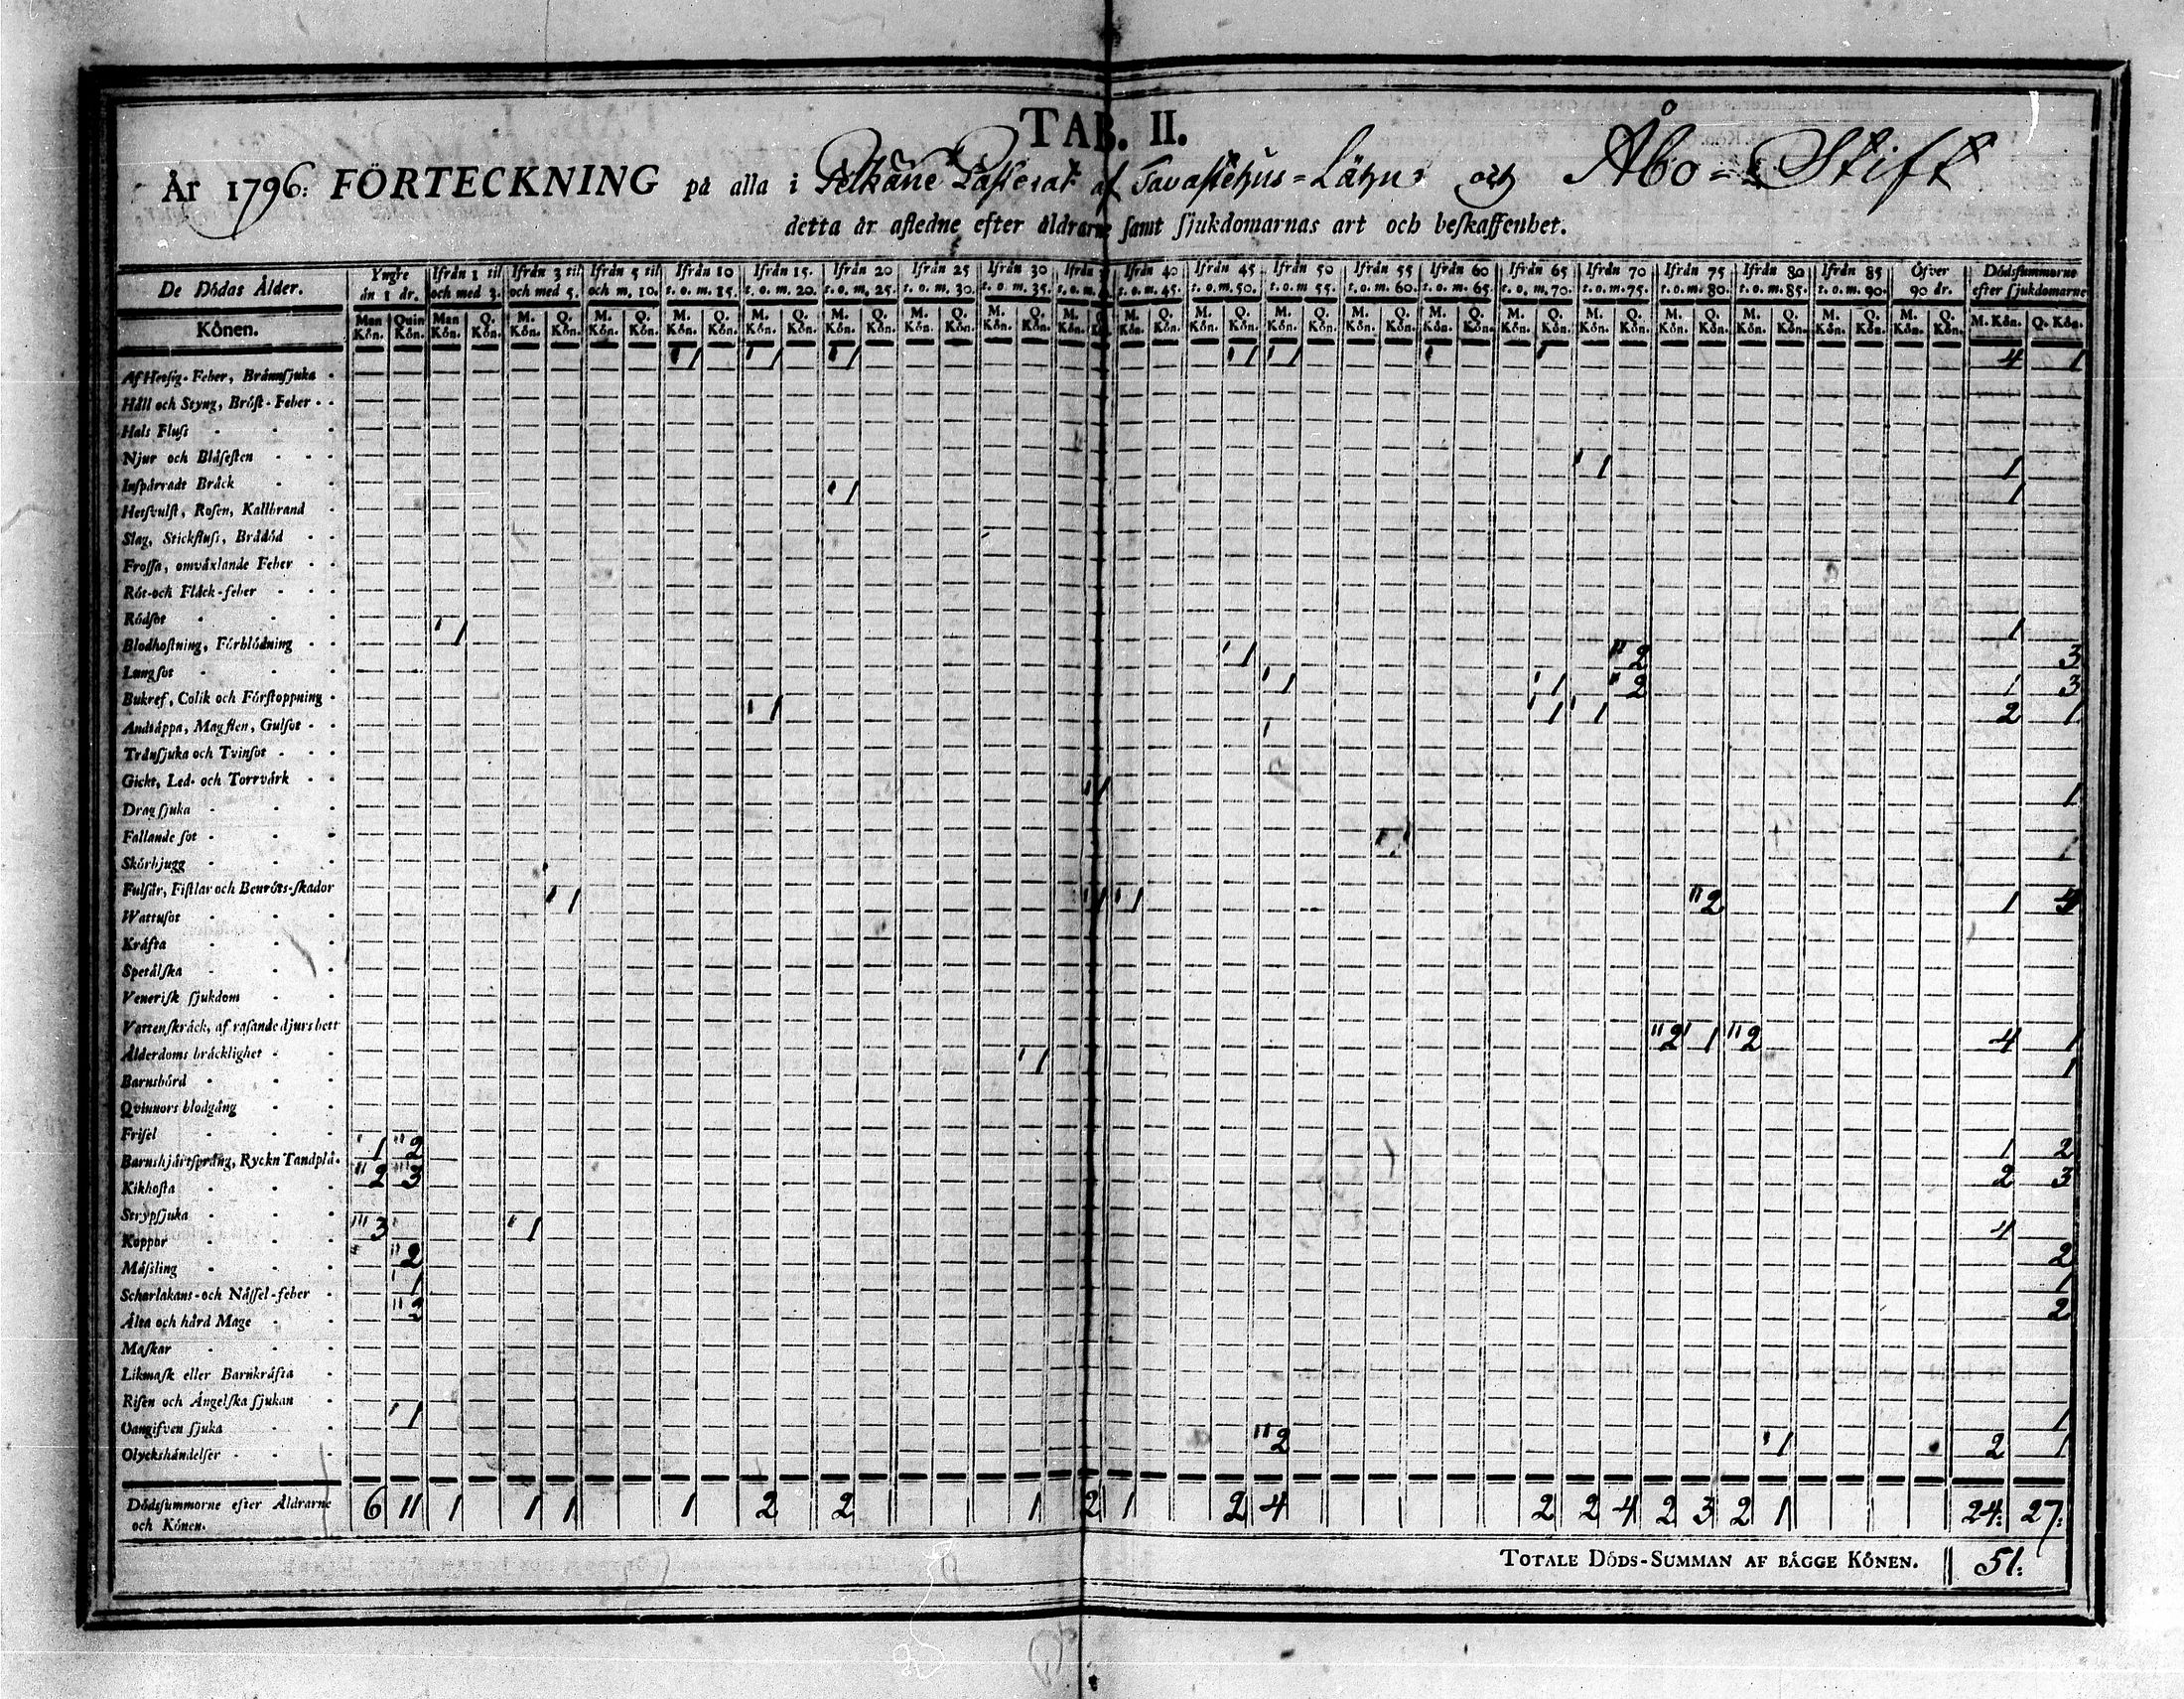 TAB. II.
År 1796: FÖRTECKNING på alla i Pelkäne Pastorat af Tavastehus=Lähn och Åbo=Stift
detta år afledne efter åldrarne samt sjukdomarnas art och beskaffenhet.
De Dödas Ålder. Yngre än 1 år. Ifrån 1 til och med 3. Ifrån 3 til och med 5. Ifrån 5 til och m. 10. Ifrån 10 t. o. m. 15. Ifrån 15. t. o. m. 20. Ifrån 20 t. o. m. 25. Ifrån 25 t. o. m. 30. Ifrån 30 t. o. m. 35. Ifrån t. o. m. Ifrån 40 t. o. m. 45. Ifrån 45 t. o. m. 50. Ifrån 50 t. o. m. 55. Ifrån 55 t. o. m. 60. Ifrån 60 t. o. m. 65. Ifrån 65 t. o. m. 70. Ifrån 70 t. o. m. 75. Ifrån 75 t. o. m. 80. Ifrån 80 t. o. m. 85. Ifrån 85 t. o. m. 90. Öfver 90 år. Dödssummorne efter sjukdomarne
Könen. Man Kön. Quin Kön. Man Kön. Q. Kön. M. Kön. Q. Kön. M. Kön. Q. Kön. M. Kön. Q. Kön. M. Kön. Q. Kön. M. Kön. Q. Kön. M. Kön. Q. Kön. M. Kön. Q. Kön. M. Kön. M. Kön. Q. Kön. M. Kön. Q. Kön. M. Kön. Q. Kön. M. Kön. Q. Kön. M. Kön. Q. Kön. M. Kön. Q. Kön. M. Kön. Q. Kön. M. Kön. Q. Kön. M. Kön. Q. Kön. M. Kön. Q. Kön. M. Kön. Q. Kön. M. Kön. Q. Kön.
Af Hetsig-Feber, Brännsjuka 1 1 1 1 1 4 1
Håll och Styng, Bröst-Feber
Hals Fluss
Njur och Blåsesten
Inspärradt Bråck 1 1
Hetsvulst, Rosen, Kallbrand 1 1
Slag, Stickfluss, Brådöd
Frossa, omväxlande Feber
Röt-och Fläck-feber
Rödsot
Blodhostning, Förblödning 1 1
Lungsot 1 2 3
Bukref, Colik och Förstoppning 1 1 2 1 3
Andtäppa, Magsten, Gulsot 1 1 1 2 1
Trånsjuka och Tvinsot
Gickt, Led- och Torrvärk
Dragsjuka 1 1
Fallande sot
Skörbjugg 1
Fulsår, Fistlar och Benröts-skador
Wattusot 1 1 1 2 1 4
Kräfta
Spetälska
Venerisk sjukdom
Vattenskräck, af rasande djurs bett
Ålderdoms bräcklighet 2 1 2 4 1
Barnsbörd 1 1
Qvinnors blodgång
Frisel
Barnshjärtsprång, Ryckn Tandplå. 1 2 1 2
Kikhosta 2 3 2 3
Strypsjuka
Koppor 3 1 4
Mässling 2 2
Scharlakans-och Nässel-feber 1 1
Älta och hård Mage 2 2
Maskar
Likmask eller Barnkräfta
Risen och Ängelska sjukan
Oangifven sjuka 1 1
Olyckshändelser 2 1 2 1
Dödssummorne efter Åldrarne 6 11 1 1 1 1 2 2 1 2 1 2 4 2 2 4 2 3 2 1 24: 27:
och Könen.
TOTALE DÖDS-SUMMAN AF BÄGGE KÖNEN. 51: